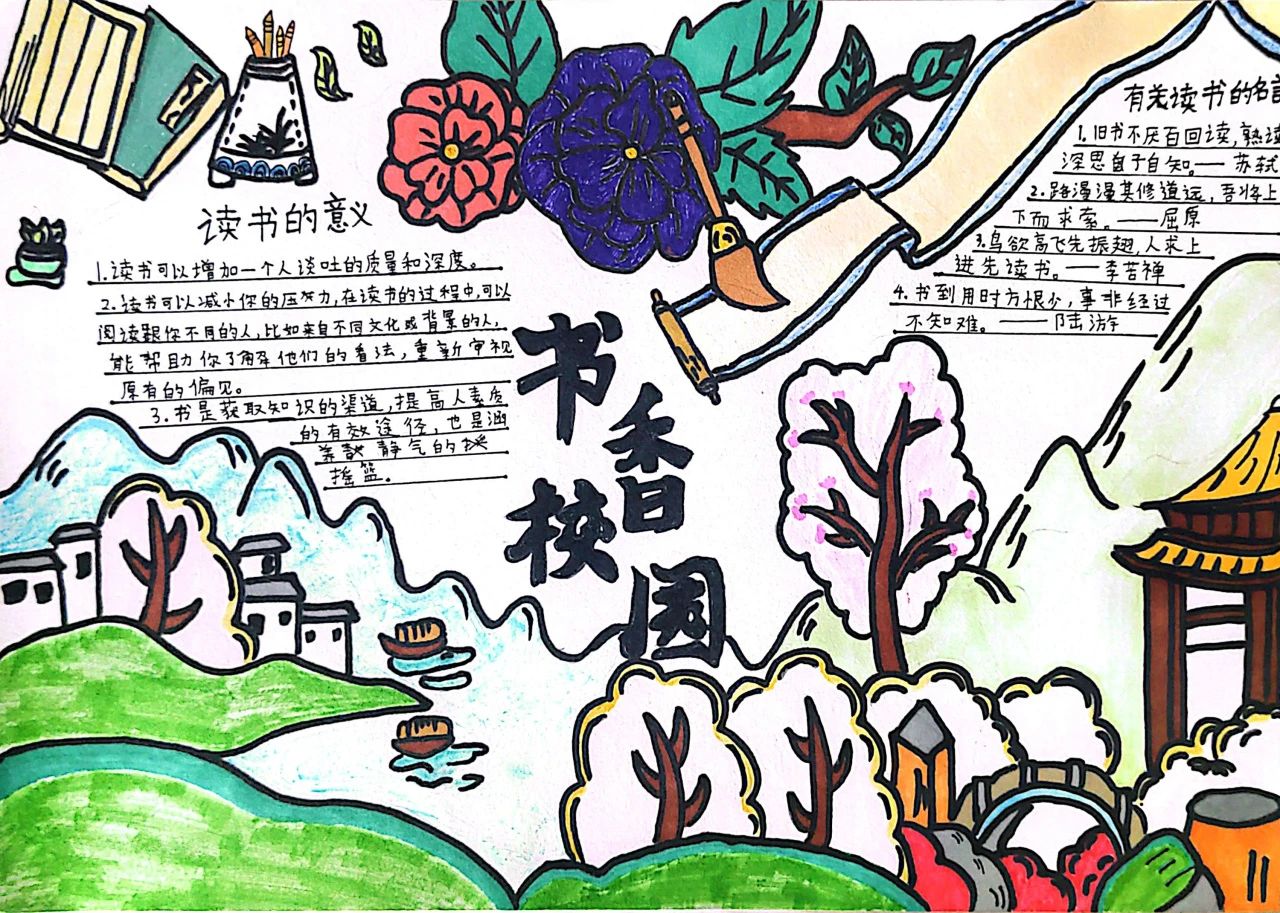 读书的意义
1.读书可以增加一个人谈吐的质量和深度。
2.读书可以减小你的压力,在读书的过程中,可以
阅读跟你不同的人,比如来自不同文化或背景的人,
能帮助你了解他们的看法,重新审视
原有的偏见。
3.书是获取知识的渠道,提高人素质
的有效途径,也是涵
养静气的
摇篮。
书香
校园
有关读书的名言
1.旧书不厌百回读,熟读
深思自子自知。——苏轼
2.路漫漫其修道远,吾将上
下而求索。——屈原
3.鸟欲高飞先振翅,人求上
进先读书。——李苦禅
4.书到用时方恨少,事非经过
不知难。——陆游